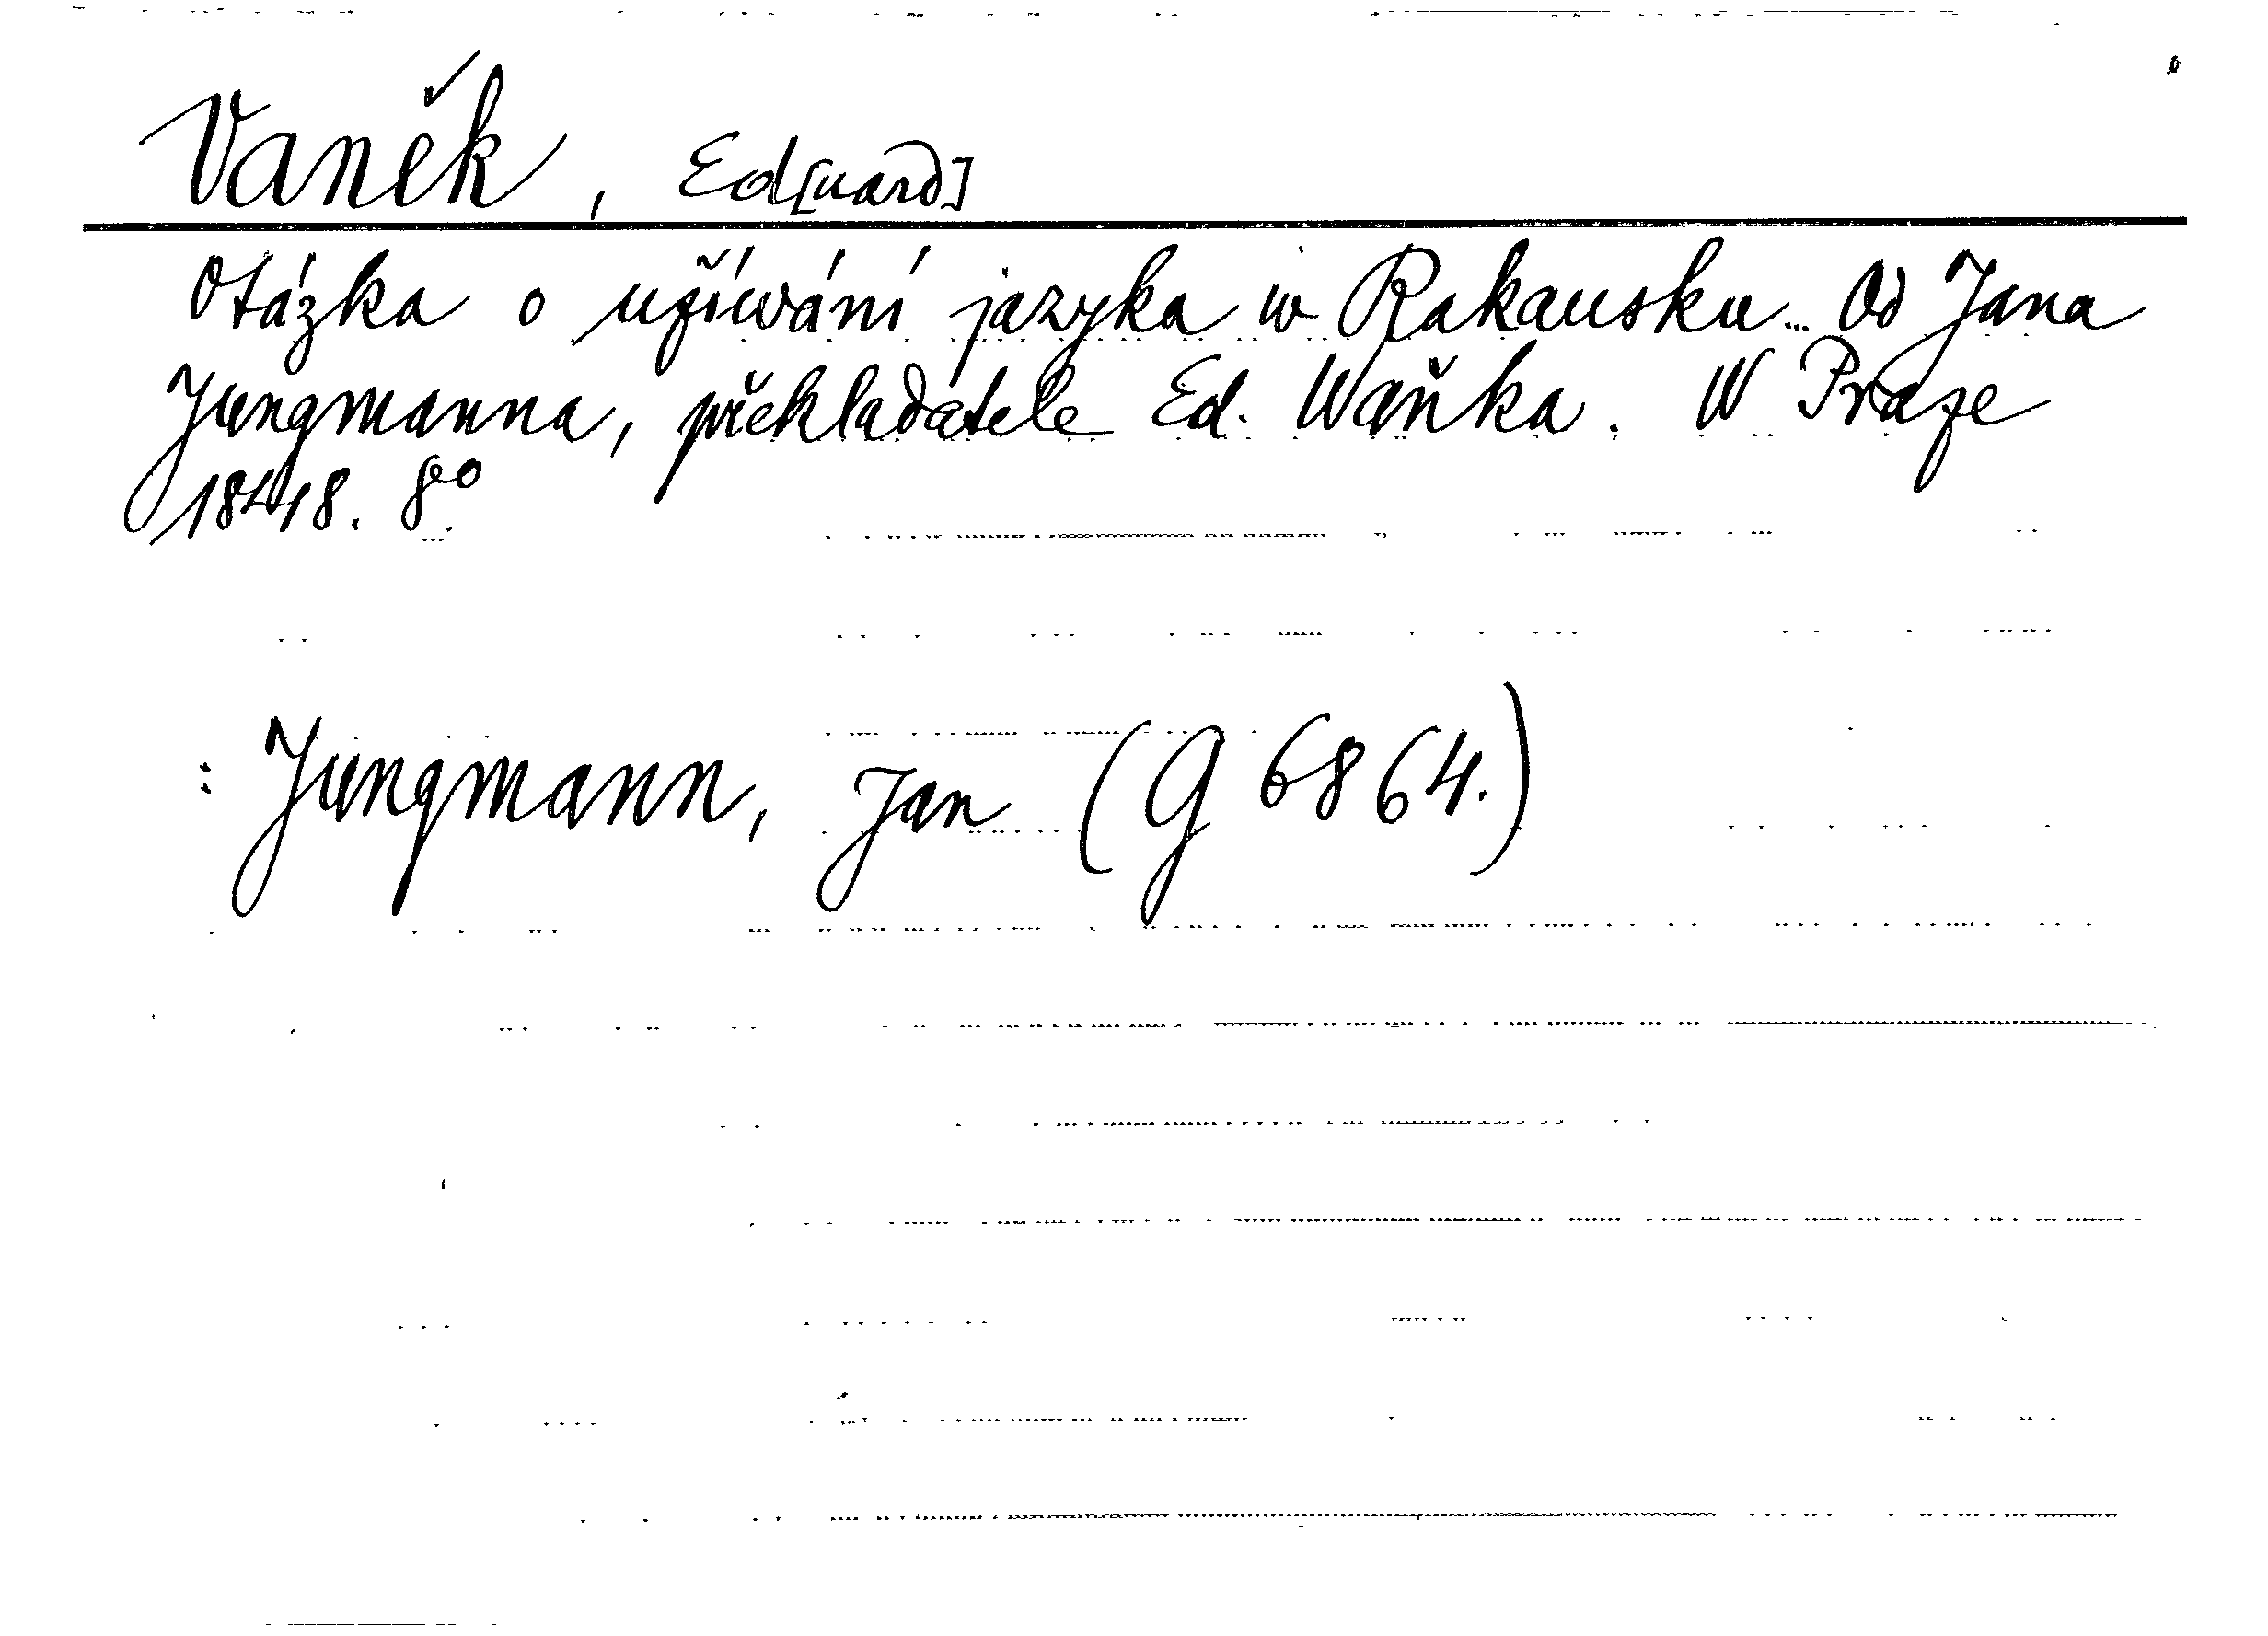 Vaněk, Ed[uard]
Otázka o užíwání jazyka w Rakausku... Od Jana
Jungmanna, překladatele Ed. Waňka. W Praze
1848. 8°.
: Jungmann, Jan (G 6864.)